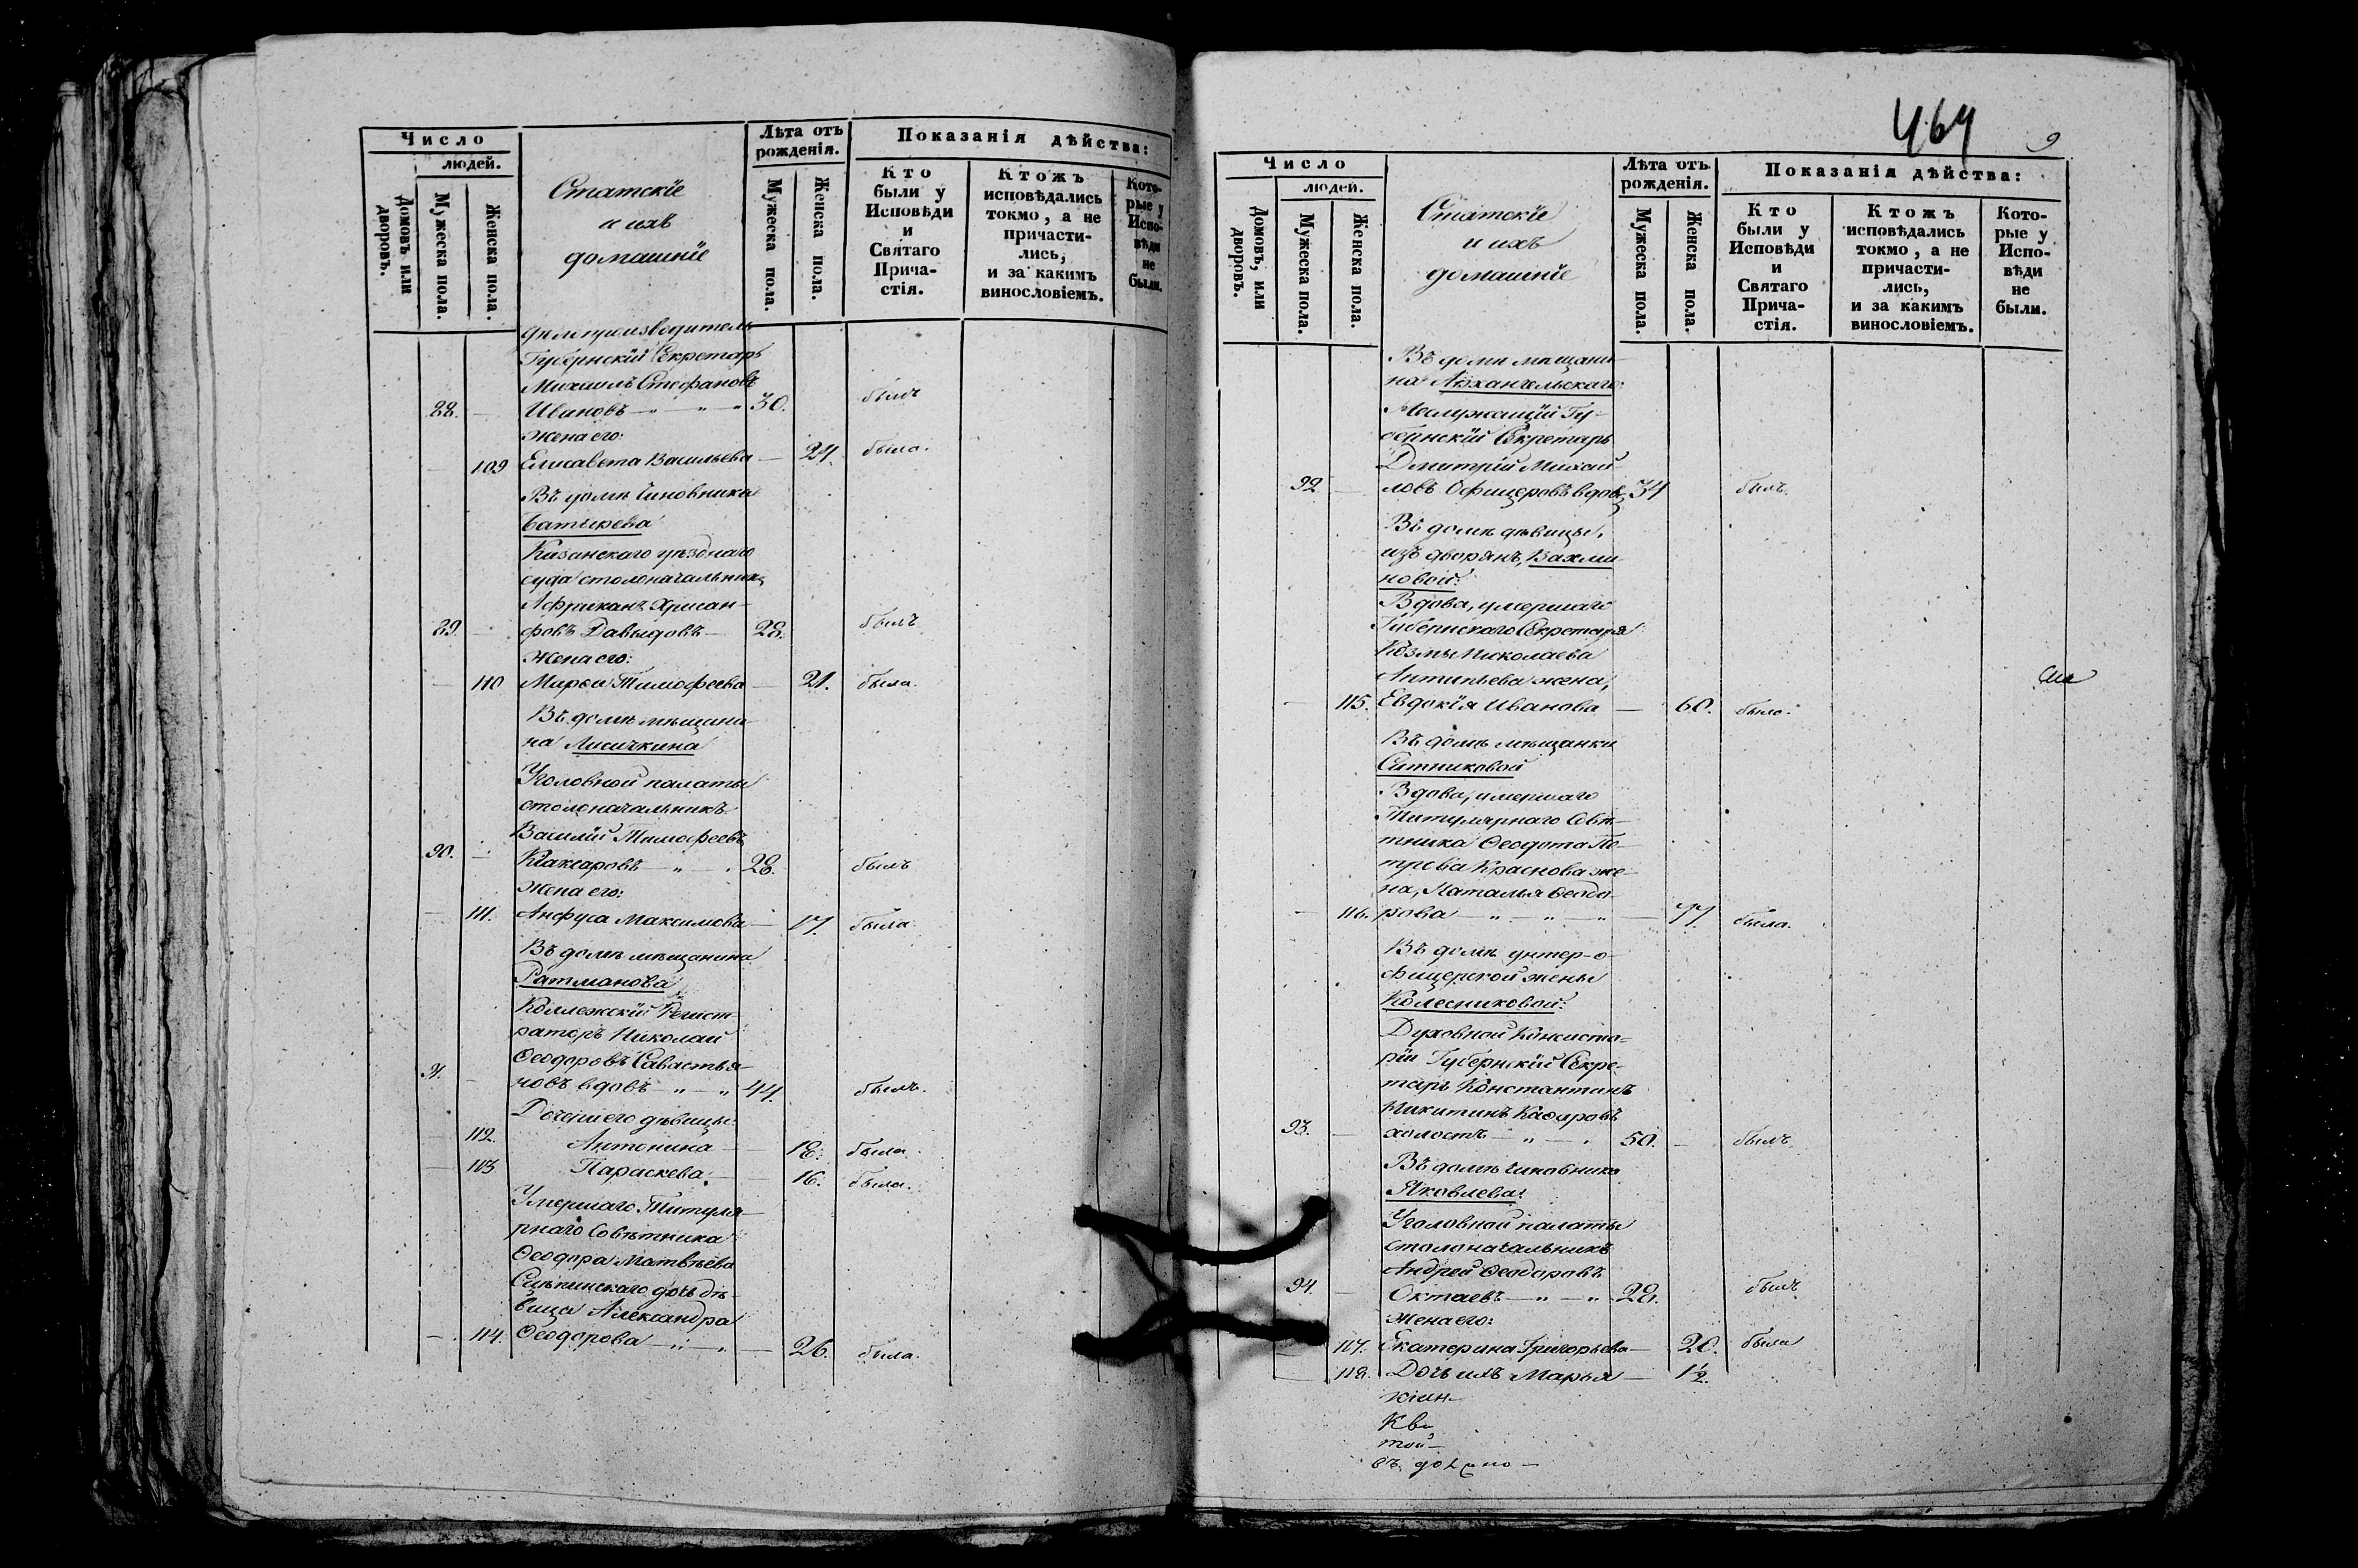 Число
людей.
Домовъ или дворовъ.
Мужеска пола.
Женска пола.
Статскіе
и ихъ
домашніе
Лѣта отъ
рожденія.
Мужеска пола.
Женска пола.
Показанія дѣйства:
Кто
были у
Исповѣди
и
Святаго
Прича-
стія.
Ктожъ
исповѣдались
токмо, а не
причасти-
лись,
и за какимъ
винословіемъ.
Кото-
рые у
Испо-
вѣди
не
были.
дѣлопроизводитель
Губернскій Секретарь
Михаилъ Стефановъ
88. Ивановъ 30. былъ
Жена его:
109 Елисавета Васильева 24. была.
Въ домѣ чиновника
Батырева
Казанскаго уѣзднаго
суда столоначальникъ
Африканъ Хрисан-
89. фовъ Давыдовъ 28. былъ
Жена его:
110 Марѳа Тимофеева 21. была.
Въ домѣ мѣщани-
на Лисичкина
Уголовной палаты
столоначальникъ
Василій Тимофеевъ
90. 28. былъ
Жена его:
111. Анфуса Максимова 17. была.
Въ домѣ мѣщанина
Ратманова
Коллежскій Регист-
раторъ Николай
Ѳеодоровъ Савастья-
91. новъ вдовъ 44. былъ.
Дочери его дѣвицы:
112. Антонина 18. была.
113 Параскева. 16. была.
Умершаго Титуля-
рнаго Совѣтника
Ѳеодора Матвѣева
дочь дѣ-
вица Александра
114. Ѳеодорова 26. была.
464 9
Число
людей.
Домовъ, или дворовъ.
Мужеска пола.
Женска пола.
Статскіе
и ихъ
домашніе
Лѣта отъ
рожденія.
Мужеска пола.
Женска пола.
Показанія дѣйства:
Кто
были у
Исповѣди
и
Святаго
Прича-
стія.
Ктожъ
исповѣдались
токмо, а не
причасти-
лись,
и за какимъ
винословіемъ.
Кото-
рые у
Испо-
вѣди
не
были.
Въ домѣ мѣщани-
на Архангельскаго:
Неслужащій Гу-
бернскій Секретарь
Дмитрій Михай-
92 ловъ Офицеровъ вдовъ 34 былъ.
Въ домѣ дѣвицы,
изъ дворянъ, Вахми-
новой:
Вдова, умершаго
Губернскаго Секретаря
Козмы Николаева
Антипьева жена,
115. Евдокія Иванова 60. была.
Въ домѣ мѣщанки
Ситниковой
Вдова, умершаго
Титулярнаго Совѣ-
тника Ѳеодота Пе-
трова Краснова же-
на, Наталья Ѳеодо-
116. рова 77. была.
Въ домѣ унтер-о-
фицерской жены
Колесниковой:
Духовной Консисто-
ріи Губернскій Секре-
тарь Константинъ
Никитинъ
93. холостъ 50. былъ
Въ домѣ чиновника
Яковлева:
Уголовной палаты
столоначальникъ
Андрей Ѳеодоровъ
94. Октаевъ 28. былъ
Жена его:
117. Екатерина Григорьева 20. была
118. Дочь ихъ Марья 1½.